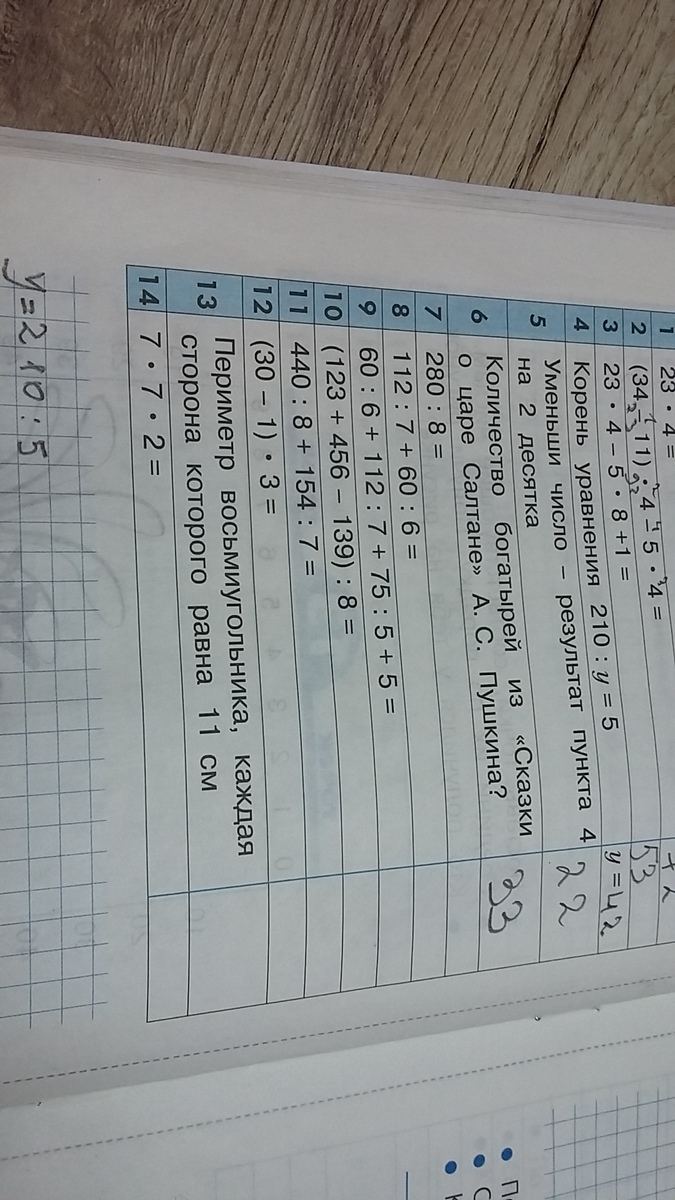 1 23 • 4 =
2 (34 11) • 4 – 5 • 4 =
3 23 • 4 – 5 • 8 +1 = 53
4 Корень уравнения 210 : y = 5 y = 42
5 Уменьши число – результат пункта 4
на 2 десятка 22
6 Количество богатырей из «Сказки
о царе Салтане» А. С. Пушкина? 33
7 280 : 8 =
8 112 : 7 + 60 : 6 =
9 60 : 6 + 112 : 7 + 75 : 5 + 5 =
10 (123 + 456 – 139) : 8 =
11 440 : 8 + 154 : 7 =
12 (30 – 1) • 3 =
13 Периметр восьмиугольника, каждая
сторона которого равна 11 см
14 7 • 7 • 2 =
y = 210 : 5